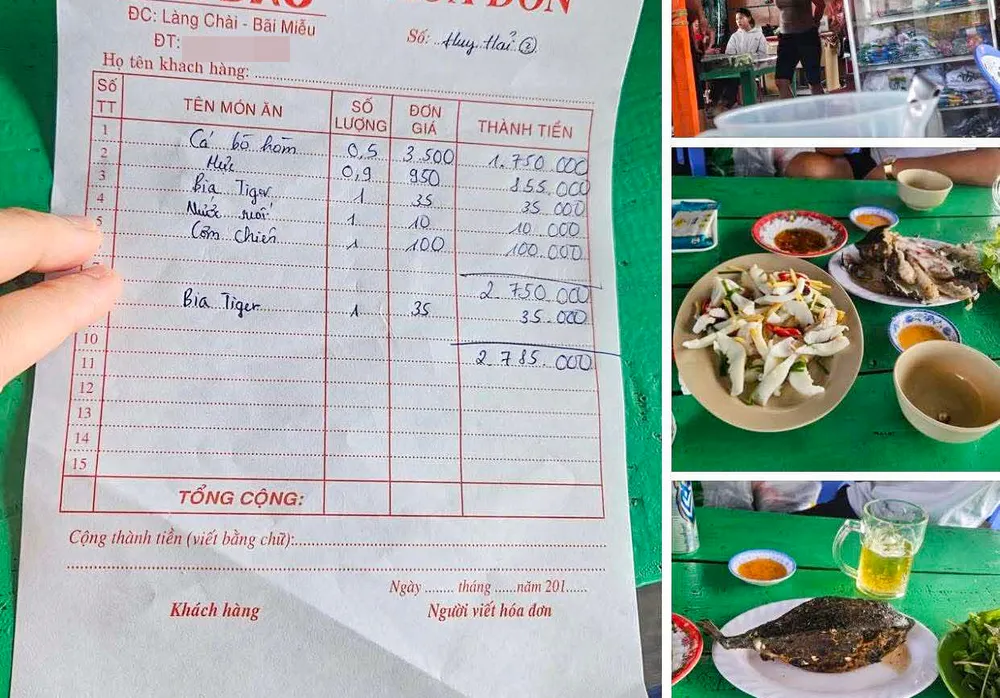 HÓA ĐƠN
ĐC: Làng Chài - Bãi Miễu
ĐT:
Số: Huy Hải 2
Họ tên khách hàng:
Số TT TÊN MÓN ĂN SỐ LƯỢNG ĐƠN GIÁ THÀNH TIỀN
1 Cá bò hòm 0,5 3.500 1.750.000
2 Mực 0,9 950 855.000
3 Bia Tiger 1 35 35.000
4 Nước suối 1 10 10.000
5 Cơm chiên 1 100 100.000
2.750.000
Bia Tiger 1 35 35.000
10
2.785.000
11
12
13
14
15
TỔNG CỘNG:
Cộng thành tiền (viết bằng chữ):
Ngày ........ tháng ......năm 201......
Khách hàng Người viết hóa đơn